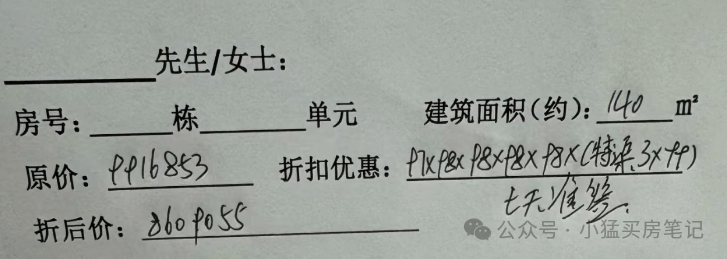 ______先生/女士：
房号：______栋______单元 建筑面积(约)：140 m²
原价：9916853 折扣优惠：97x98x98x98x98x(特渠3x99)
七天准签.
折后价：8609055
公众号·小猛买房笔记